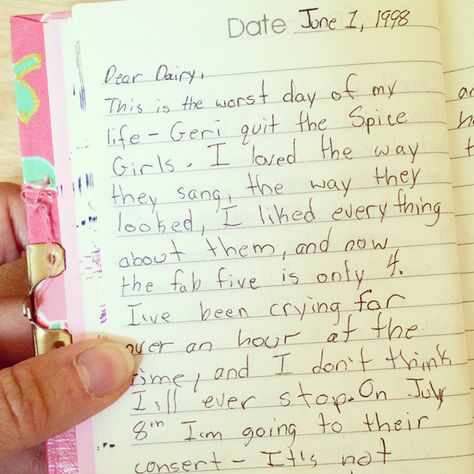 Date June 1, 1998
Dear Dairy,
This is the worst day of my
life - Geri quit the Spice
Girls. I loved the way
they sang, the way they
looked, I liked everything
about them, and now
the fab five is only 4.
I've been crying for
over an hour at the
time, and I don't think
I'll ever stop. On July
8th I'm going to their
consert - It's not